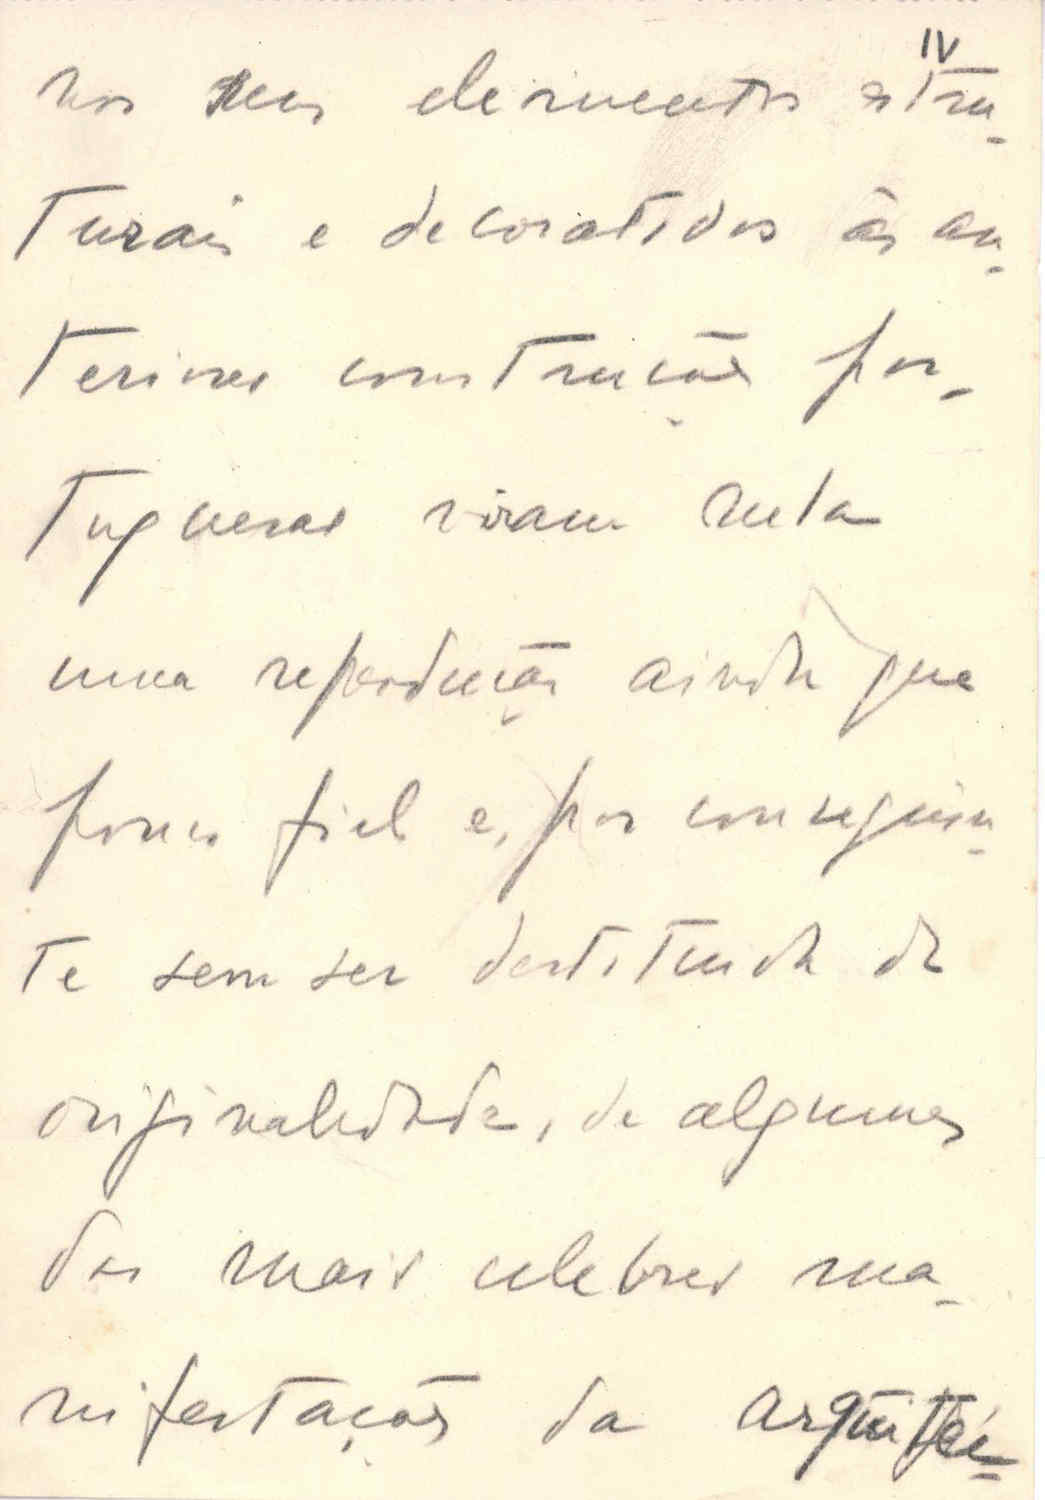 IV
nos seus elementos estru-
turais e decorativos às an-
teriores construções por-
tuguesas viram nela
uma reprodução ainda que
pouco fiel e, por conseguin-
te sem ser destituida de
originalidade, de algumas
das mais celebres ma-
nifestações da arqûitéc-